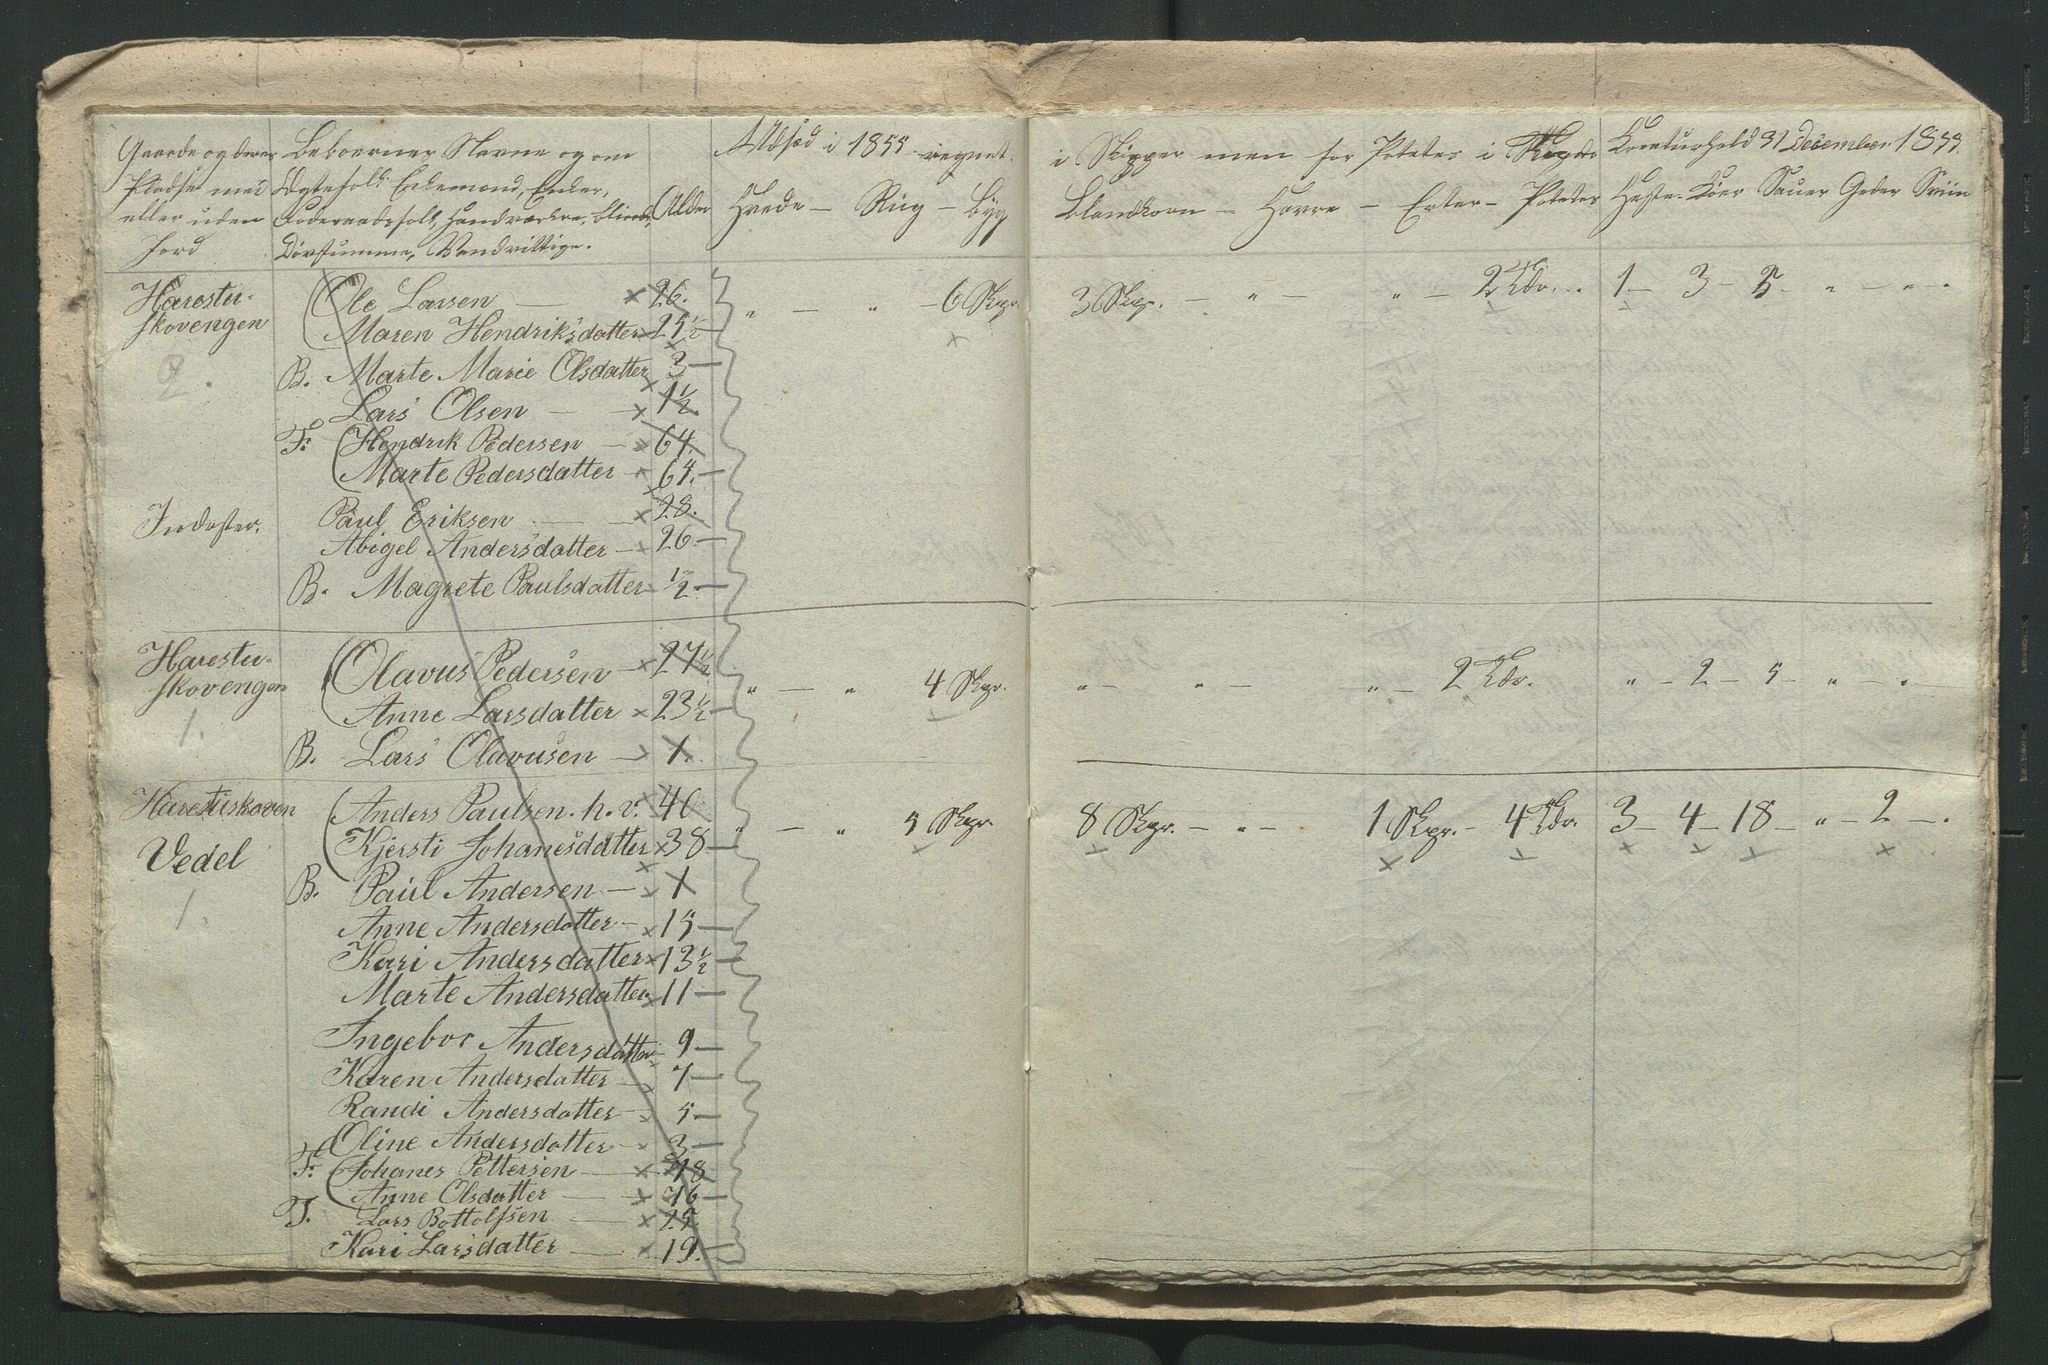 Gaarde og deres Beboernes Navne og om Udsæd i 1855 regnet i Skipper men for Poteter i Kreaturhold 31 December 1855.
Pladse med Ægtefolk Enkemænd, Enker,
eller uden Føderaadsfolk, Haandværkere, blinde, Alder Hvede – Rug – Byg Blandkorn – Havre – Erter – Poteter Heste Køer Sauer Geder Sviin
Jord Døvstumme, Vandvittige.
Harestu- Ole Larsen — 26. „ — „ – 6 Skpr. 3 Skpr. — „ — „ – 2 Tdr. 1 – 3 – 5 „ – „ .
skovengen Maren Hendriksdatter 25½
2. B. Marte Marie Olsdatter 3 —
Lars Olsen — 1½
F. Hendrik Pedersen — 64.
Marte Pedersdatter 64. —
Inderster. Paul Eriksen — 28.
Abigel Andersdatter — 26 —
B. Magrete Paulsdatter ½ —
Harestu- Olavus Pedersen 27½ „ — „ 4 Skpr. „ – „ – „ – 2 Tdr. „ – 2 – 5 – „ – .
skovengen Anne Larsdatter 23½
1. B. Lars Olavusen 1.
Harestuskoven Anders Paulsen. h. v. 40 „ — „ 5 Skpr. 8 Skpr. – „ – 1 Skpr. – 4 Tdr. 3 – 4 – 18 – „ – 2 – .
Vedel Kjersti Johanesdatter 38 —
1. B. Paul Andersen — 1
Anne Andersdatter – 15 —
Kari Andersdatter 13½ —
Marte Andersdatter 11 —
Ingebor Andersdatter 9 —
Karen Andersdatter 7 —
Randi Andersdatter 5 —
Oline Andersdatter 3 —
F. Johanes Pettersen — 78
Anne Olsdatter — 76 —
T. Lars Bottolfsen — 25.
Kari Larsdatter — 19. —